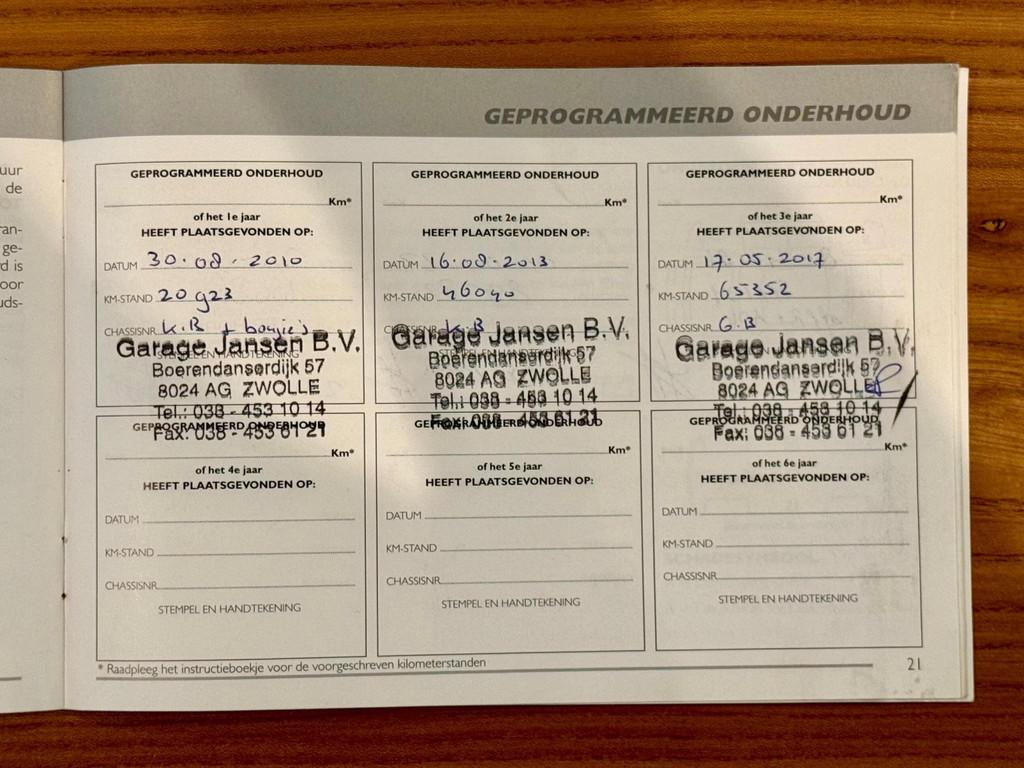 uur
de
ran-
ge-
d is
oor
uds-
GEPROGRAMMEERD ONDERHOUD
GEPROGRAMMEERD ONDERHOUD
Km*
of het 1e jaar
HEEFT PLAATSGEVONDEN OP:
DATUM 30.08.2010
KM-STAND 20923
CHASSISNR. K.B + bougie's
STEMPEL EN HANDTEKENING
Garage Jansen B.V.
Boerendanserdijk 57
8024 AG ZWOLLE
Tel.: 038 - 453 10 14
Fax: 038 - 453 61 21
GEPROGRAMMEERD ONDERHOUD
Km*
of het 2e jaar
HEEFT PLAATSGEVONDEN OP:
DATUM 16.08.2013
KM-STAND 46040
CHASSISNR. K.B
STEMPEL EN HANDTEKENING
Garage Jansen B.V.
Boerendanserdijk 57
8024 AG ZWOLLE
Tel.: 038 - 453 10 14
Fax: 038 - 453 61 21
GEPROGRAMMEERD ONDERHOUD
Km*
of het 3e jaar
HEEFT PLAATSGEVONDEN OP:
DATUM 17.05.2017
KM-STAND 65352
CHASSISNR. G.B
Garage Jansen B.V.
Boerendanserdijk 57
8024 AG ZWOLLE
Tel.: 038 - 453 10 14
Fax: 038 - 453 61 21
GEPROGRAMMEERD ONDERHOUD
Km*
of het 4e jaar
HEEFT PLAATSGEVONDEN OP:
DATUM
KM-STAND
CHASSISNR.
STEMPEL EN HANDTEKENING
GEPROGRAMMEERD ONDERHOUD
Km*
of het 5e jaar
HEEFT PLAATSGEVONDEN OP:
DATUM
KM-STAND
CHASSISNR.
STEMPEL EN HANDTEKENING
GEPROGRAMMEERD ONDERHOUD
Km*
of het 6e jaar
HEEFT PLAATSGEVONDEN OP:
DATUM
KM-STAND
CHASSISNR.
STEMPEL EN HANDTEKENING
* Raadpleeg het instructieboekje voor de voorgeschreven kilometerstanden
21